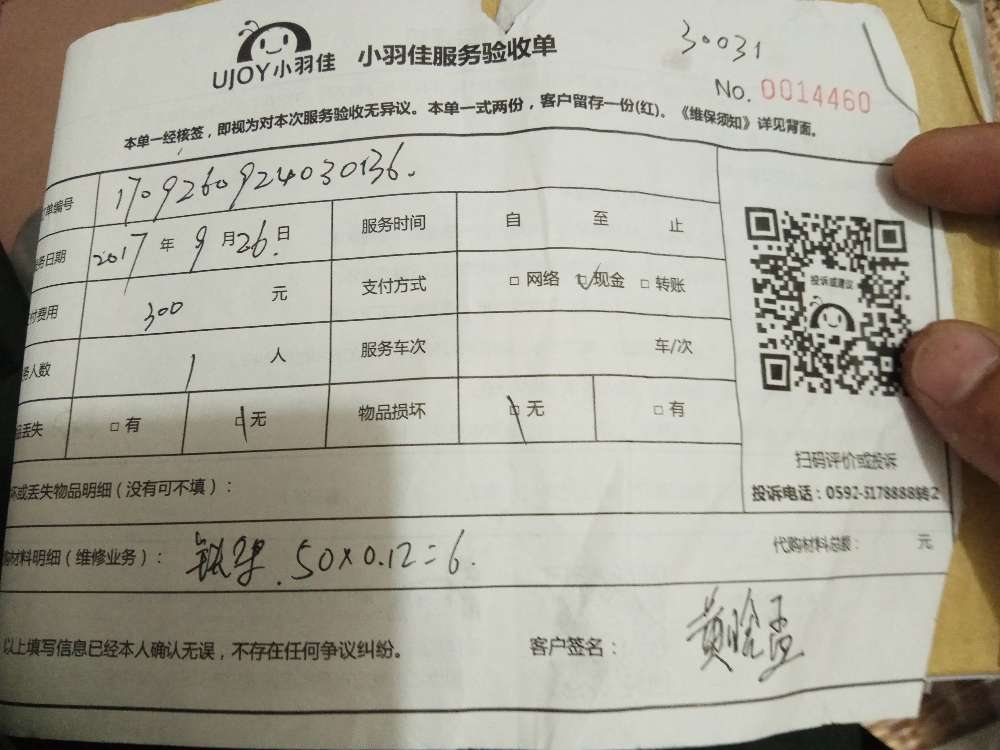 30031
UJOY小羽佳 小羽佳服务验收单
No. 0014460
本单一经核签，即视为对本次服务验收无异议。本单一式两份，客户留存一份(红)。《维保须知》详见背面。
单编号 170926092403036.
务日期 2017 年 9 月 26. 日 服务时间 自 至 止
付费用 300 元 支付方式 □ 网络 □ 现金 □ 转账
务人数 1 人 服务车次 车/次
品丢失 □ 有 □ 无 物品损坏 □ 无 □ 有
坏或丢失物品明细（没有可不填）：
购材料明细（维修业务）： 50×0.12=6. 代购材料总额： 元
以上填写信息已经本人确认无误，不存在任何争议纠纷。 客户签名：
投诉或建议
扫码评价或投诉
投诉电话：0592-5178888转2